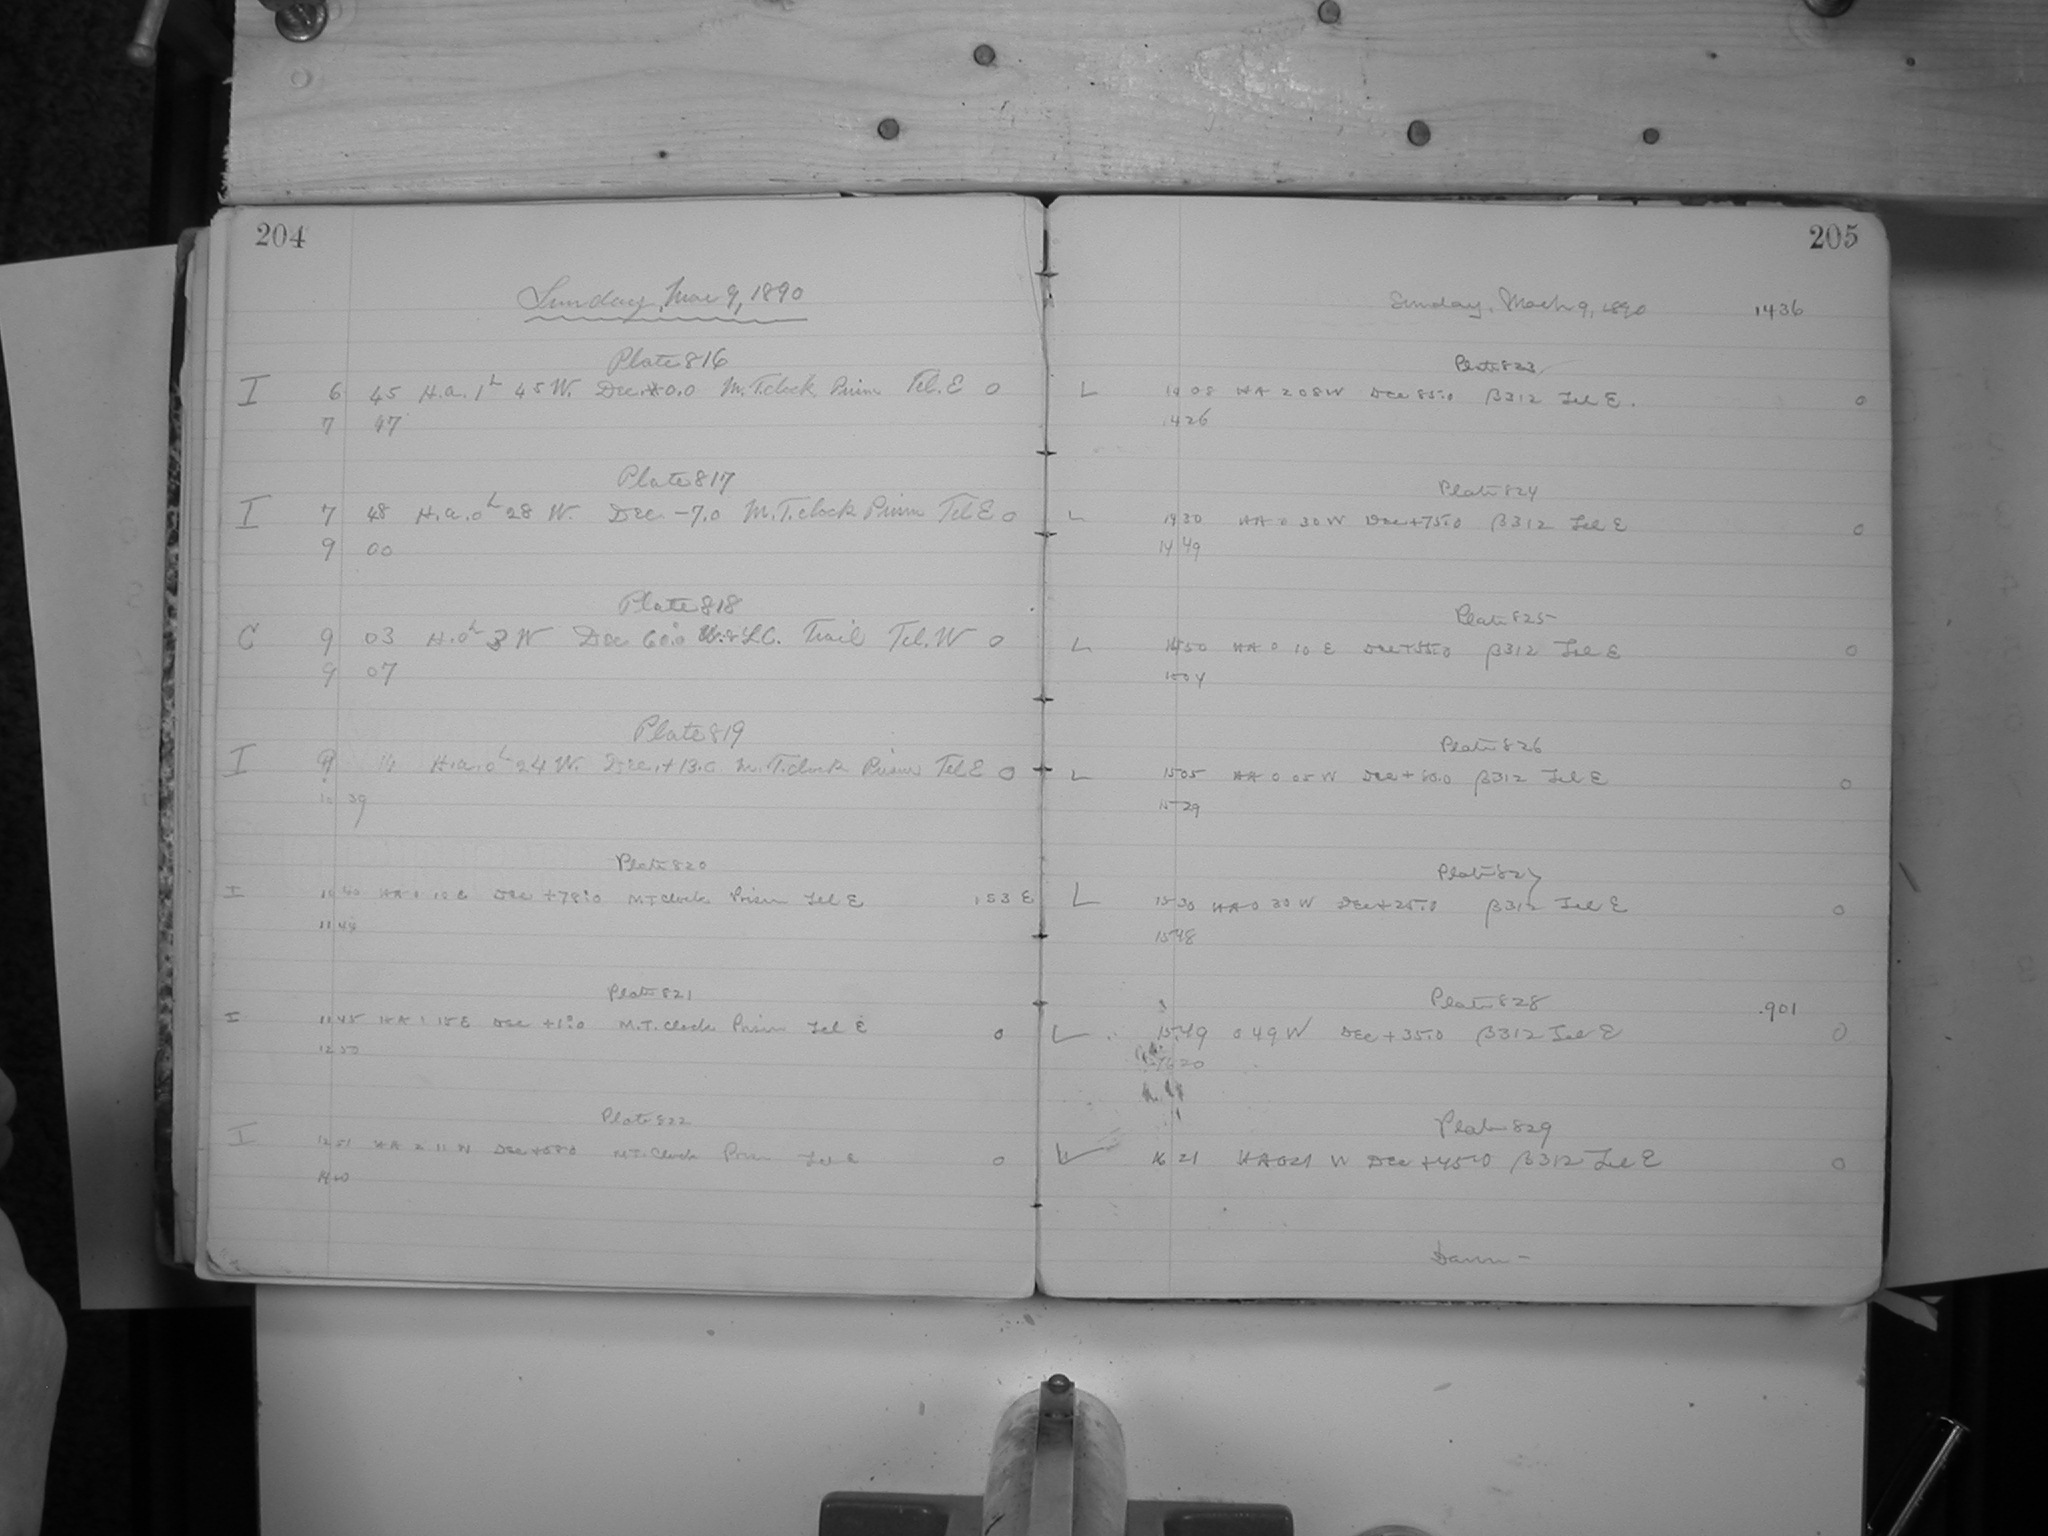 204
Sunday, Mar 9, 1890
Plate 816
I 6 45 H.a. 1h 45 W. Dec. +0.0 M.T. clock Prism Tel. E 0
7 47
Plate 817
I 7 48 H.a. 0h 28 W. Dec. -7.0 M.T. clock Prism Tel E 0
9 00
Plate 818
C 9 03 H. 0h 3 W Dec 60.0 Trail Tel. W 0
9 07
Plate 819
I 9 14 H.a. 0h 24 W. Dec. +13.0 M.T. clock Prism Tel E 0
10 39
Plate 820
I 10 40 HA 0 10 E Dec +78.0 M T clock Prism Tel E 153 E
11 44
Plate 821
I 11 45 HA 1 15 E Dec +1.0 M.T. clock Prism Tel E 0
12 50
Plate 822
I 12 51 HA 2 11 W Dec M T. clock Prism Tel E 0
205
Sunday, March 9, 1890 1436
Plate 823
L 14 08 HA 2 08 W Dec 85.0 β 312 Tel E. 0
14 26
Plate 824
L 14 30 HA 0 30 W Dec +75.0 β 312 Tel E 0
14 49
Plate 825
L 14 50 HA 0 10 E Dec +55.0 β 312 Tel E 0
15 04
Plate 826
L 15 05 HA 0 05 W Dec β 312 Tel E 0
15 29
Plate 827
L 15 30 HA 0 30 W Dec +25.0 β 312 Tel E 0
15 48
Plate 828 .901
L 15 49 0 49 W Dec +35.0 β 312 Tel E 0
16 20
Plate 829
L 16 21 HA 0 21 W Dec +45.0 β 312 Tel E 0
Dawn -